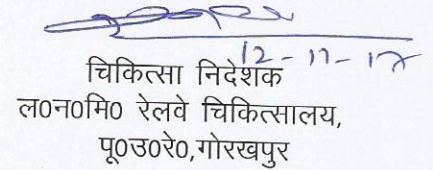 12-11-17
चिकित्सा निदेशक
ल0न0मि0 रेलवे चिकित्सालय,
पू0उ0रे0,गोरखपुर